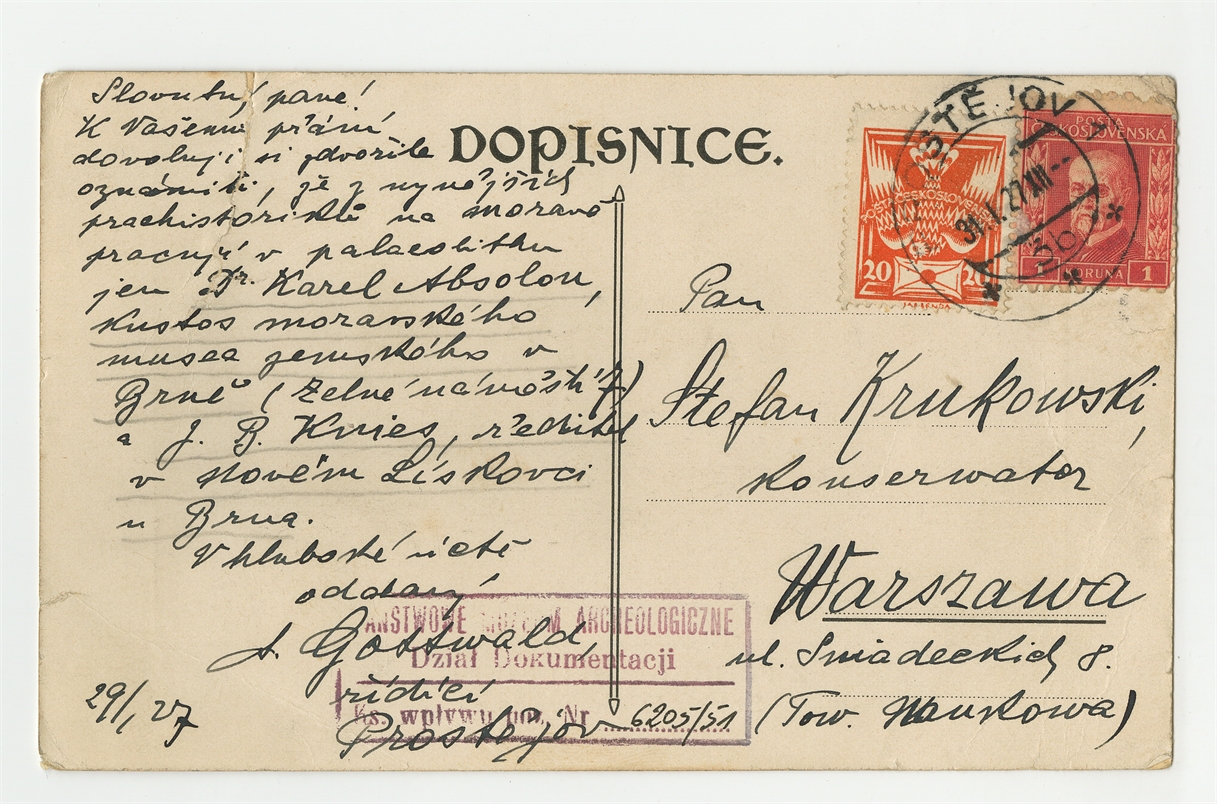 Slovutný pane!
K Vašemu přání
dovoluji si zdvořile
oznámiti, že z nynějších
praehistoriků na Moravě
pracují v palaeolitku
jen Dr. Karel Absolon,
kustos moravského
musea zemského v
Brně (Zelné náměstí 7)
a J. B. Knies, ředitel
v Novém Lískovci
u Brna.
V hluboké úctě
oddaný
A. Gottwald,
řídící
Prostějov
29/I 27
DOPISNICE.
POŠTA ČESKOSLOVENSKÁ
20 20
POŠTA
ČESKOSLOVENSKÁ
1 KORUNA 1
STĚJOV
31.I.27.XII
3b
Pan
Stefan Krukowski,
konserwator
Warszawa
ul. Sniadeckich 8.
(Tow. Naukowa)
PAŃSTWOWE MUZEUM ARCHEOLOGICZNE
Dział Dokumentacji
Ks. wpływu poz. Nr 6205/51